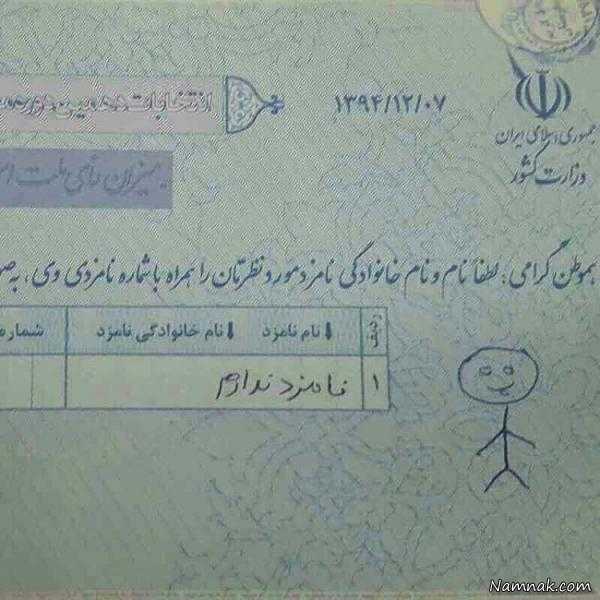 جمهوری اسلامی ایران
وزارت کشور
۱۳۹۴/۱۲/۰۷
انتخابات دهمین دوره
میزان رأی ملت
هموطن گرامی، لطفاً نام و نام خانوادگی نامزد مورد نظرتان را همراه با شماره نامزدی وی، به
ردیف نام نامزد نام خانوادگی نامزد شماره
۱ نامزد ندارم
Namnak.com